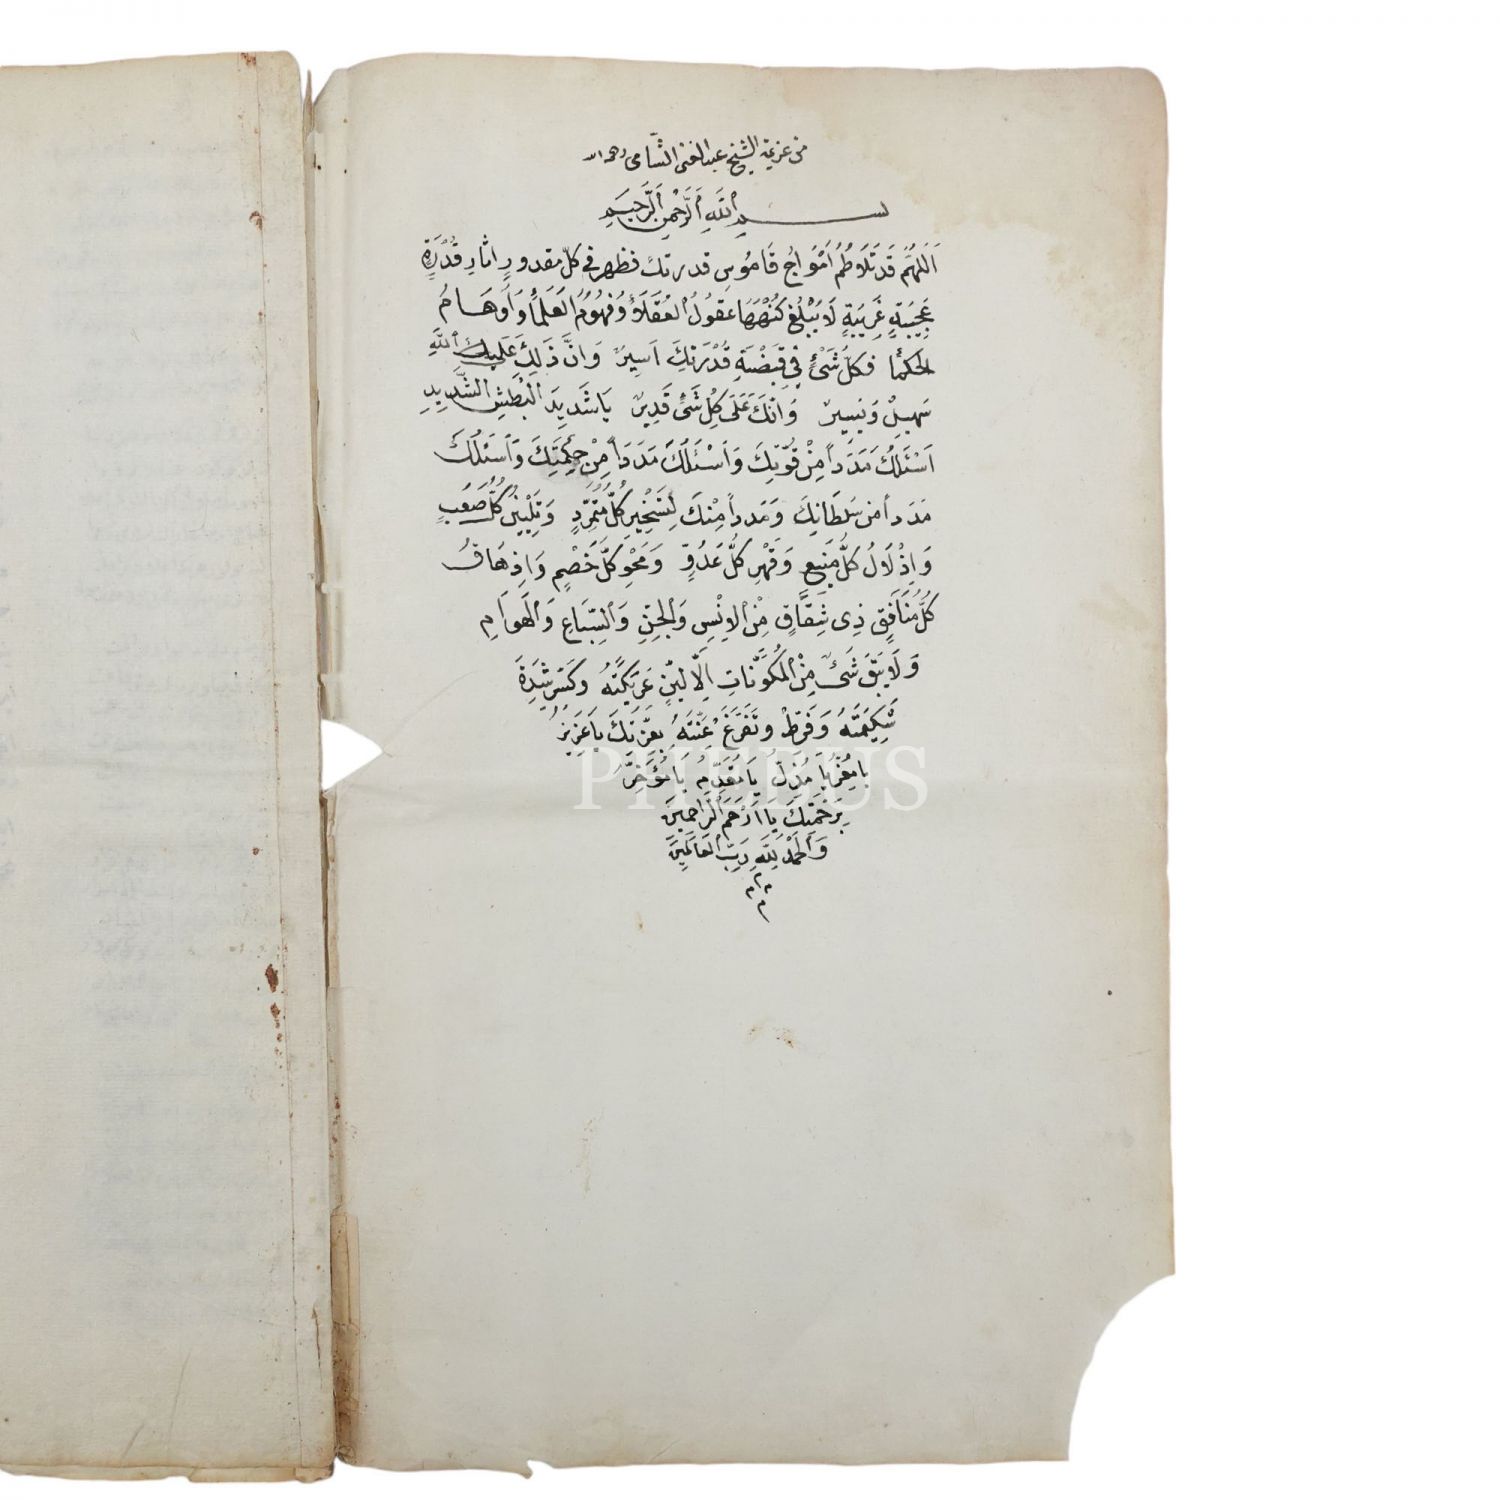 من عزيمة الشيخ عبد الغنى الشّامى رحمه الله
بسم الله الرّحمن الرّحيم
اَللّهُمَّ قَدْ تَلَاطُمُ اَمْوَاجُ قَامُوسِ قدرتك فظهر فى كلّ مقدورٍ اثارِ قُدْرَةٍ
عَجِيبَةٍ غَرِيبَةٍ لَا يَبْلُغُ كُنْهَهَا عقُولُ العُقَلَاءُ وَفُهُومُ العُلَمَاءُ وَاَوْهَامُ
الحَكُمَاءِ فكلُّ شَىْءٍ فِى قَبَضْتَةِ قُدْرَتِكَ اَسِيرٌ وَانَّ ذَلِكَ عَلَيْكَ اللهِ
سَهِيلٌ وَيَسِيرٌ وَانَّكَ عَلَى كُلِّ شَىْءٍ قَدِيرٌ يَا شَدِيدَ البَطْشِ الشَّدِيدِ
اَسْئَلُكَ مَدَداً مِنْ قُوَّتِكَ وَاَسْئَلُكَ مَدَداً مِنْ حِكْمَتِكَ وَاَسْئَلُكَ
مَدَداً من سَلطَانِكَ وَمَدداً مِنْكَ لِتَسْخِيرِ كُلِّ مُتَمَرِّدٍ وَتَلْيِيْنِ كُلِّ صَعْبٍ
وَاِذْلَالُ كُلِّ مَنِيعٍ وَقَهْرِ كُلِّ عَدُوٍّ وَمَحْوِ كلِّ خَصْمٍ وَاِذهَاقُ
كُلِّ مُنَافَقٍ ذِى شِقَاقٍ مِنْ الاِنْسِ وَالجِنِّ وَالسِّبَاعِ وَالهَوَامِ
وَلَا يَبْقَ شَىْءٌ مِنْ المُكَوَّنَاتِ اِلَّا لَيِّنٍ عَرِيكَتُهُ وَكَسْرِ شِدَةَ
شَكِيمَتَهُ وَفَرِّطْ وتَفَرَّغَ عِنَّتَهُ بعِزّتِكَ يا عَزِيزُ
يا مُعِزُّ يا مُذِلُّ يَا مُقَدِّمُ يَا مُؤَخِّرُ
بِرَحْمَتِكَ يا اَرْحَمَ الرَّاحِمِينَ
وَالحَمْدُ لِلّهِ رَبِّ العَالَمِينَ
م م م
PHEBUS